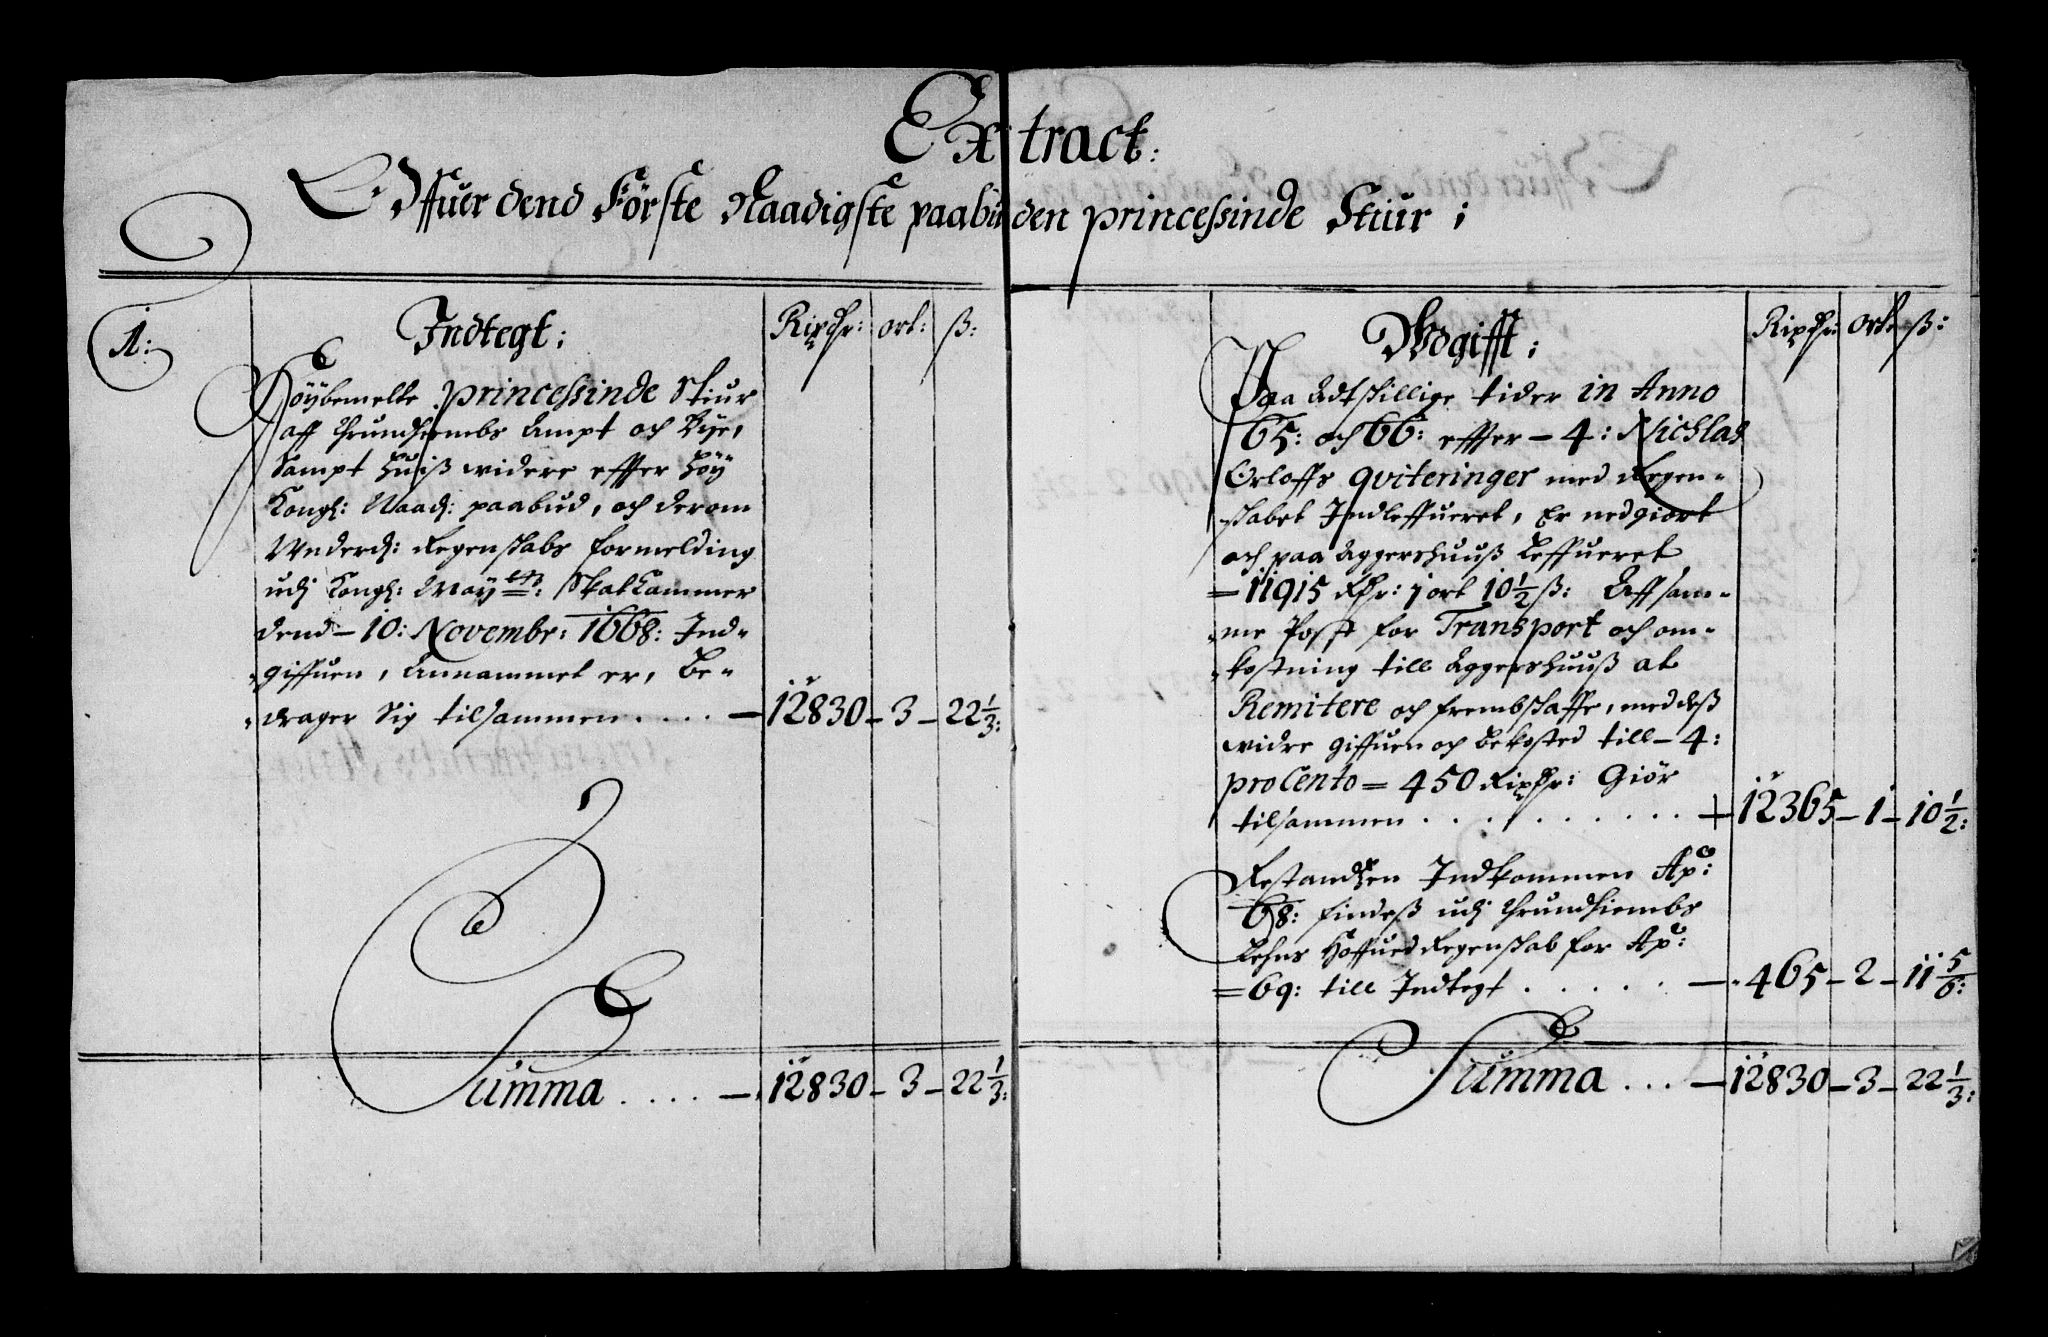 Extract:
Offuer dend Første Naadigste paabuden princessinde Stiur;
1:
Indtegt:
Rixdr: ort: ß:
Høybemelte princessinde Stiur
aff Thrundhiembs Ampt och Bye,
Sampt huiß widere effter høy
Kongl: Naad: paabud, och derom
Vnderd: Regenskabs formelding
udj Kongl: Mayts: SkatCammer
dend - 10: Novembr: 1668: Ind-
giffuen, Annammet er, be-
drager sig tilsammen . . . . — 12830 - 3 - 22 1/3:
Summa . . . . — 12830 - 3 - 22 1/3:
Wdgifft:
Rixdr: ort: ß:
Paa Adtskillige tider in Anno
65: och 66: effter - 4: Nichlas
Orloffs qviteringer med Regen-
skabet Indleffueret, Er nedgiort
och paa Aggershuuß Leffueret
— 11915 Rdr: 1 ort 10 1/2 ß: Aff sam-
me Post for Transport och om-
kostning till Aggershuuß at
Remitere och frembskaffe, med deß
widre giffuen och bekosted till - 4:
pro Cento = 450 Rixdr: Giør
tilsammen . . . . . . . . . . 12365 - 1 - 10 1/2:
Restandzen Indkommen Ao:
68: findeß udj Thrundhiembs
Lehns Hoffued Regenskab for Ao:
= 69: till Indtegt . . . . . — 465 - 2 - 11 5/6:
Summa . . . — 12830 - 3 - 22 1/3: